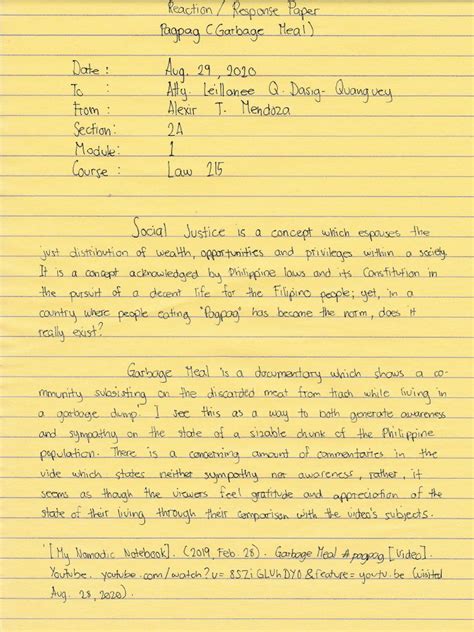 Reaction / Response Paper
Pagpag (Garbage Meal)
Date : Aug. 29, 2020
To : Atty. Leillanee Q. Dasig- Quanguey
From : Alexir T. Mendoza
Section: 2A
Module: 1
Course : Law 215
Social Justice is a concept which espouses the
just distribution of wealth, opportunities and privileges within a society.
It is a concept acknowledged by Philippine laws and its Constitution in
the pursuit of a decent life for the Filipino people; yet, in a
country where people eating "Pagpag" has become the norm, does it
really exist?
Garbage Meal is a documentary which shows a co-
mmunity subsisting on the discarded meat from trash while living in
a garbage dump¹. I see this as a way to both generate awareness
and sympathy on the state of a sizable chunk of the Philippine
population. There is a concerning amount of commentaries in the
vide which states neither sympathy nor awareness, rather, it
seems as though the viewers feel gratitude and appreciation of the
state of their living through their comparison with the video's subjects.
¹[My Nomadic Notebook]. (2019, Feb. 28). Garbage Meal #pagpag [Video].
Youtube. youtube.com/watch?v= &feature=youtu.be (visited
Aug. 28, 2020).